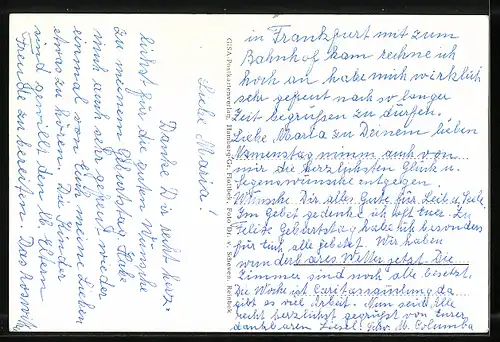 Liebe Maria!
Danke Dir recht herz-
lichst für die guten Wünsche
zu meinem Geburtstag. Habe
mich auch sehr gefreut wieder
einmal von Euch meine Lieben
etwas zu hören. Die Kinder
sind gewillt den lb. Eltern
Freude zu bereiten. Das Roswith
GISA-Postkartenverlag, Hamburg-Gr. Flottbek, Foto Dr. v. Scheven, Reinbek
in Frankfurt mit zum
Bahnhof kam rechne ich
hoch an habe mich wirklich
sehr gefreut nach so langer
Zeit begrüßen zu dürfen.
Liebe Maria zu Deinem lieben
Namenstag nimm auch von
mir die herzlichsten Glück u.
Segenswünsche entgegen.
Wünsche Dir alles Gute für Leib u. Seele.
Im Gebet gedenke ich oft Euer. Zu
Geburtstag habe ich besonders
für Euch alle gebetet. Wir haben
wunderbares Wetter jetzt. Die
Zimmer sind noch alle besetzt.
Die Woche ist Caritassammlung da
gibt es viel Arbeit. Nun seid Alle
recht herzlichst gegrüßt von Eurer
dankbaren Liesel. Schw. M. Columba